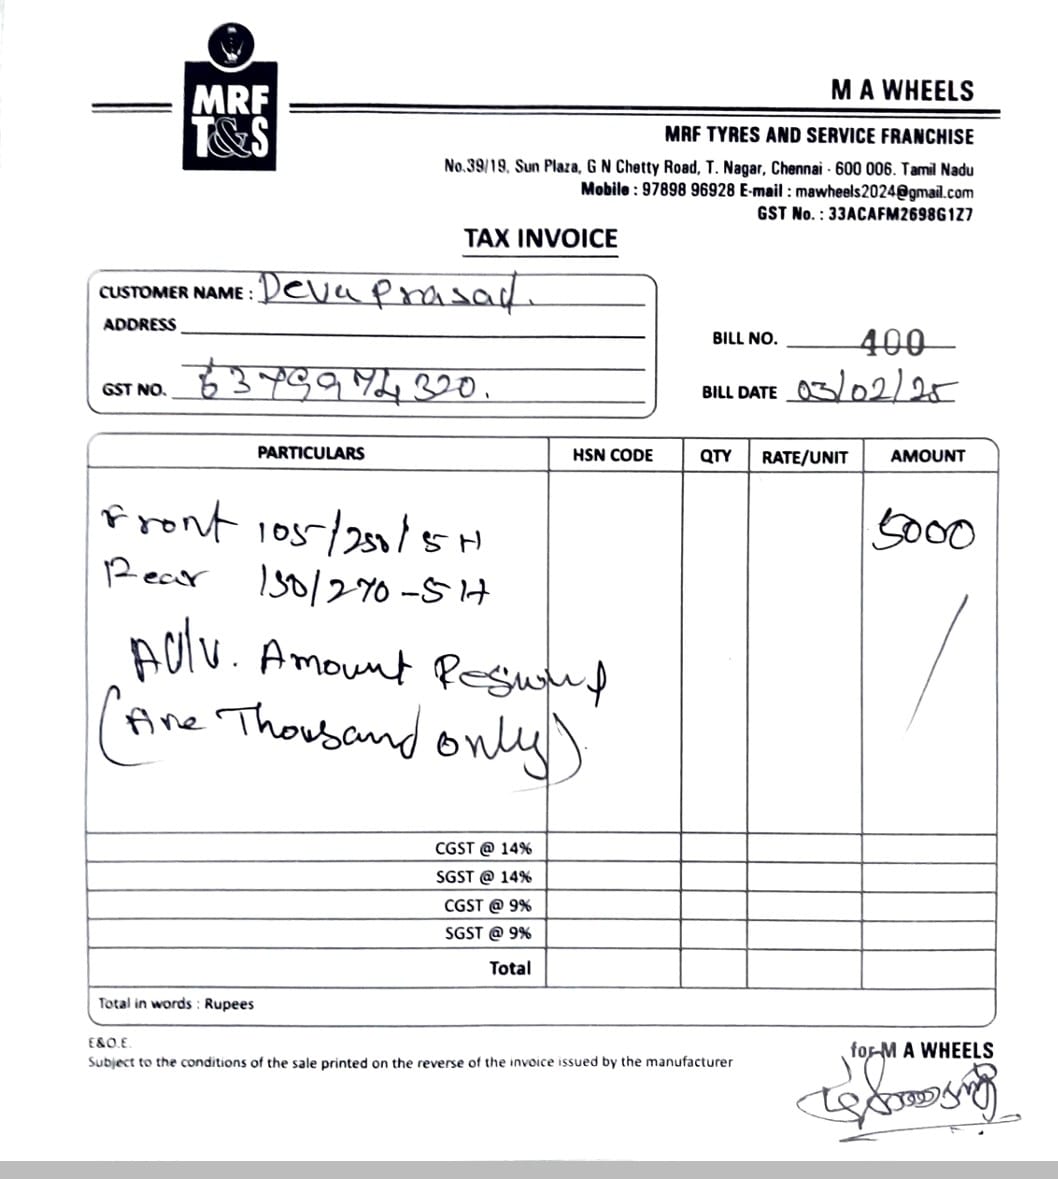 MRF
T&S
M A WHEELS
MRF TYRES AND SERVICE FRANCHISE
No.39/19, Sun Plaza, G N Chetty Road, T. Nagar, Chennai - 600 006. Tamil Nadu
Mobile : 97898 96928 E-mail : mawheels2024@gmail.com
GST No. : 33ACAFM2698G1Z7
TAX INVOICE
CUSTOMER NAME : Deva Prasad.
ADDRESS
BILL NO. 400
GST NO. 6379974320.
BILL DATE 03/02/25
PARTICULARS HSN CODE QTY RATE/UNIT AMOUNT
Front 105/250/5H 5000
Rear 150/270-5H
Amount
Thousand only)
CGST @ 14%
SGST @ 14%
CGST @ 9%
SGST @ 9%
Total
Total in words : Rupees
E&O.E.
Subject to the conditions of the sale printed on the reverse of the invoice issued by the manufacturer
for M A WHEELS